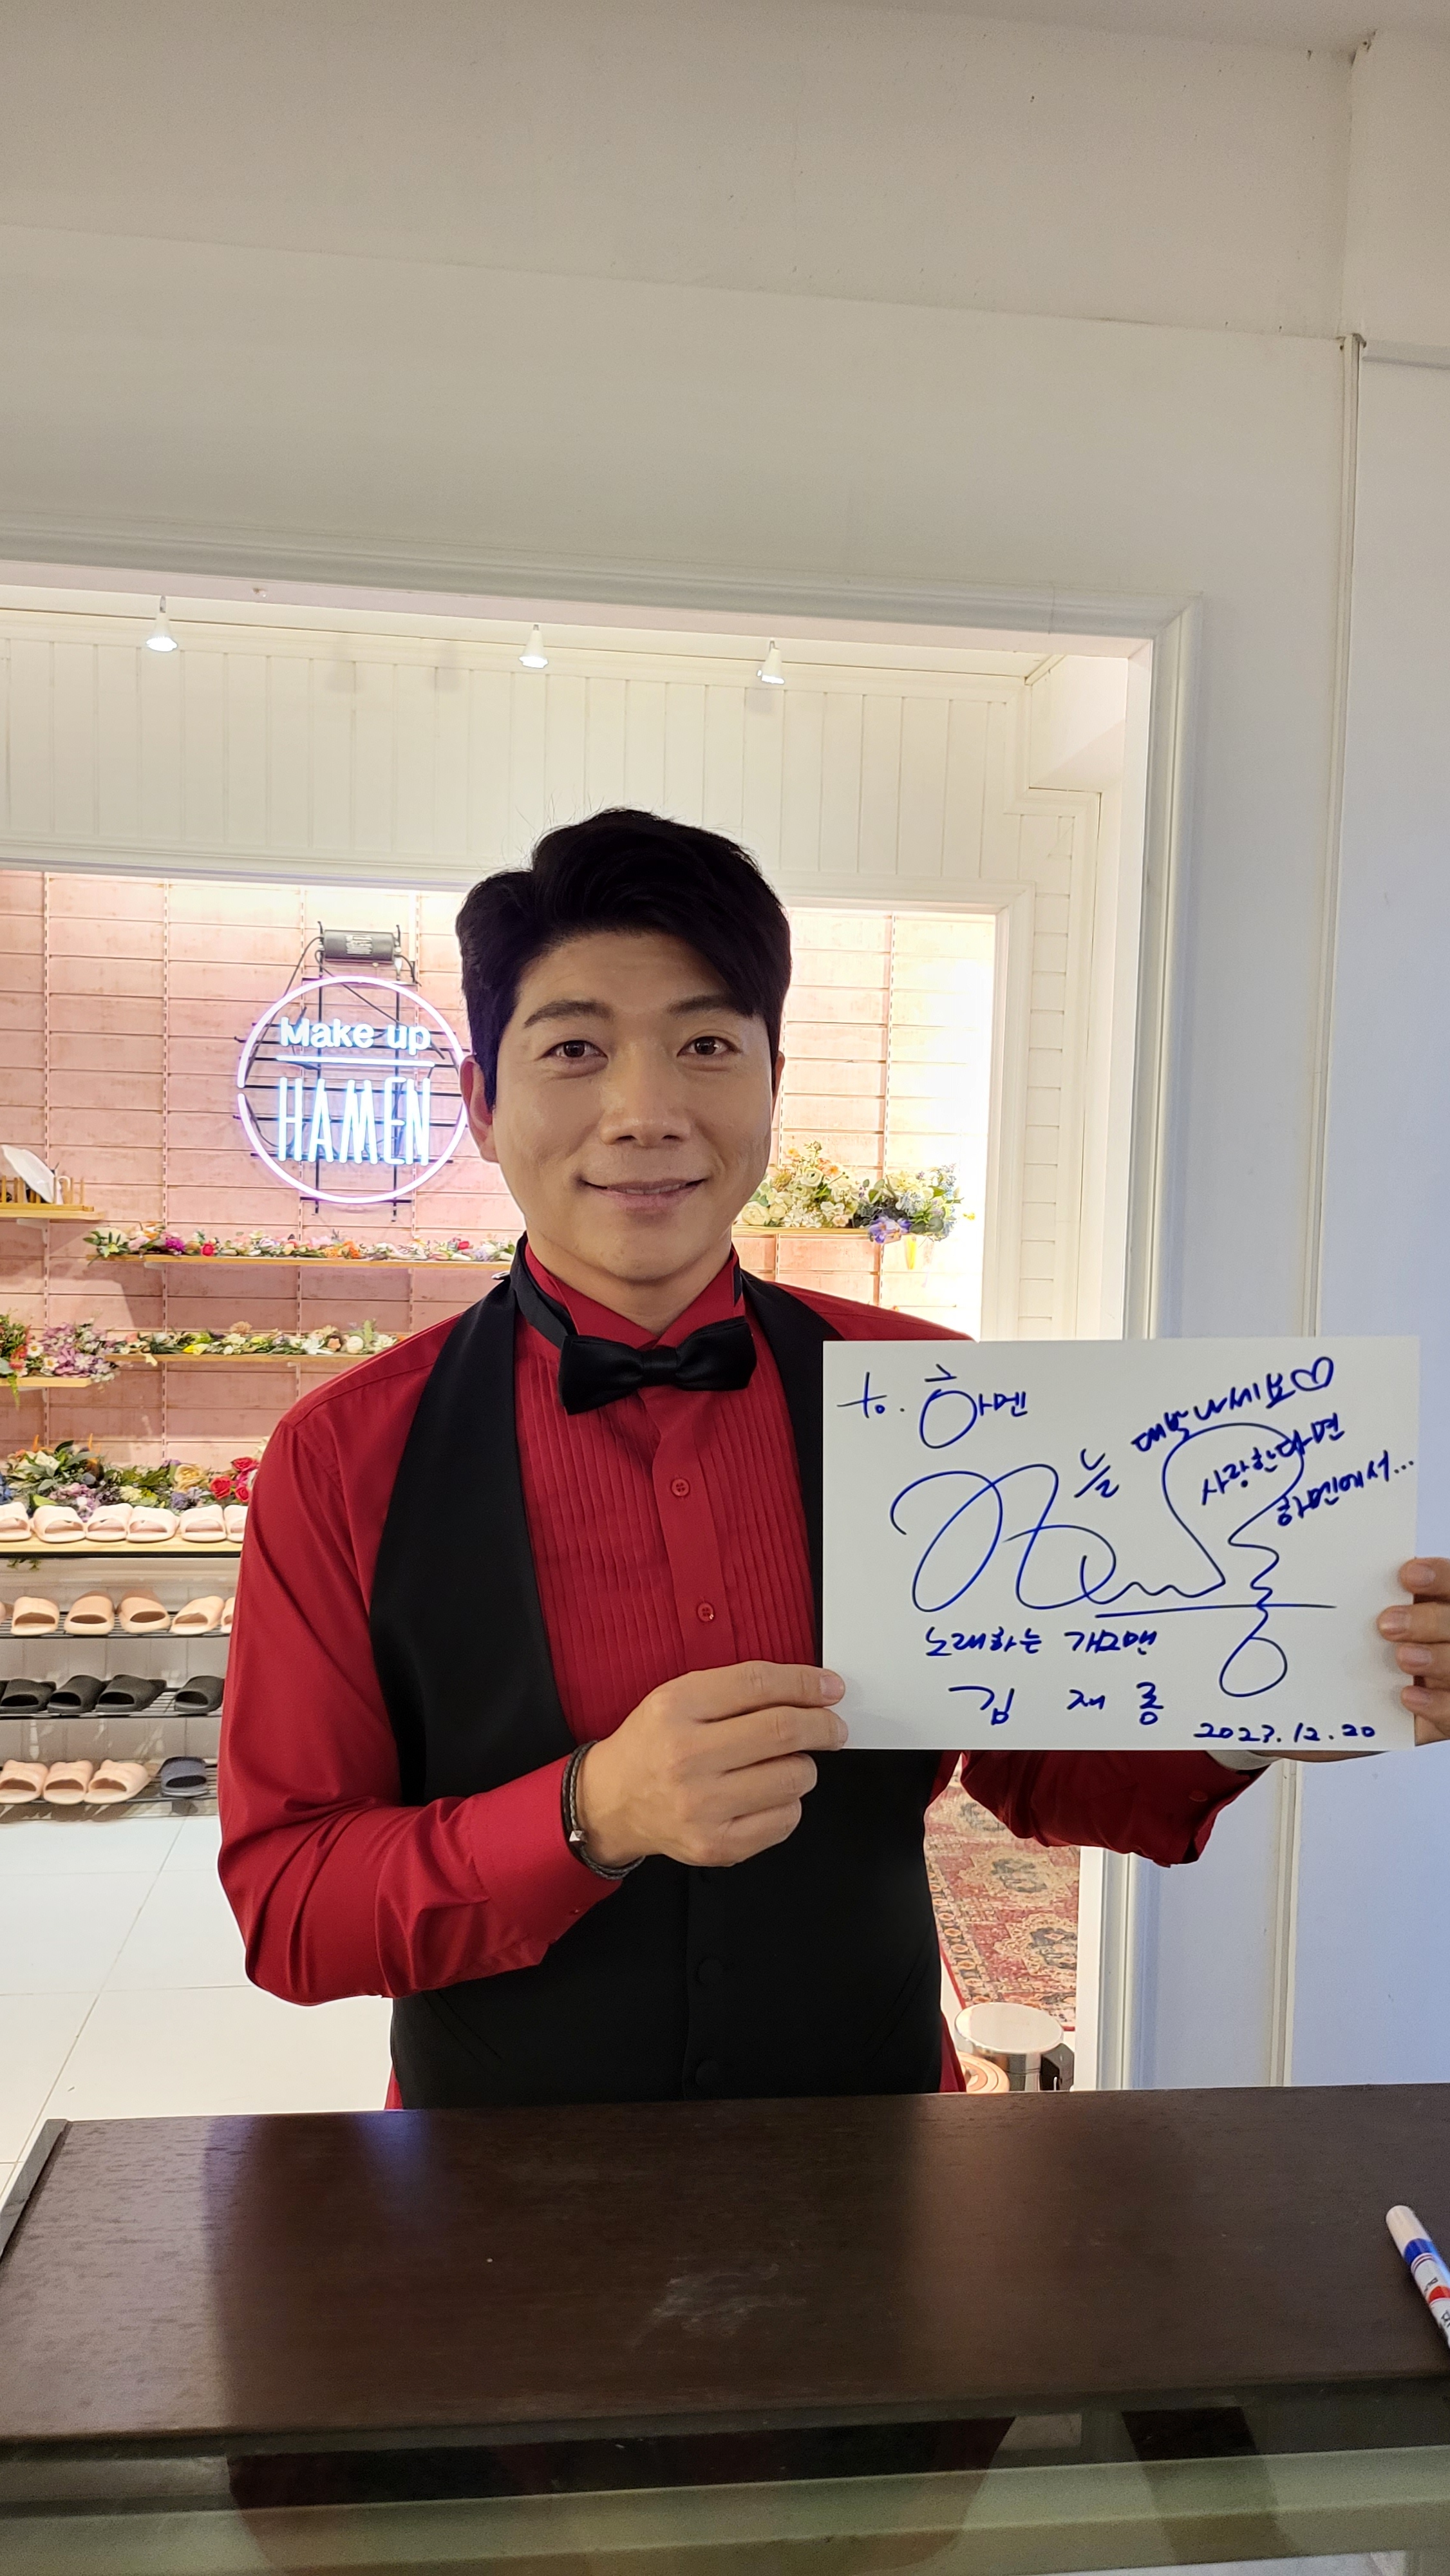 Make up
HAMEN
to. 하멘
늘 대박나세요♡
사랑한다면
하멘에서...
노래하는 개그맨
김 재롱
2023.12.20